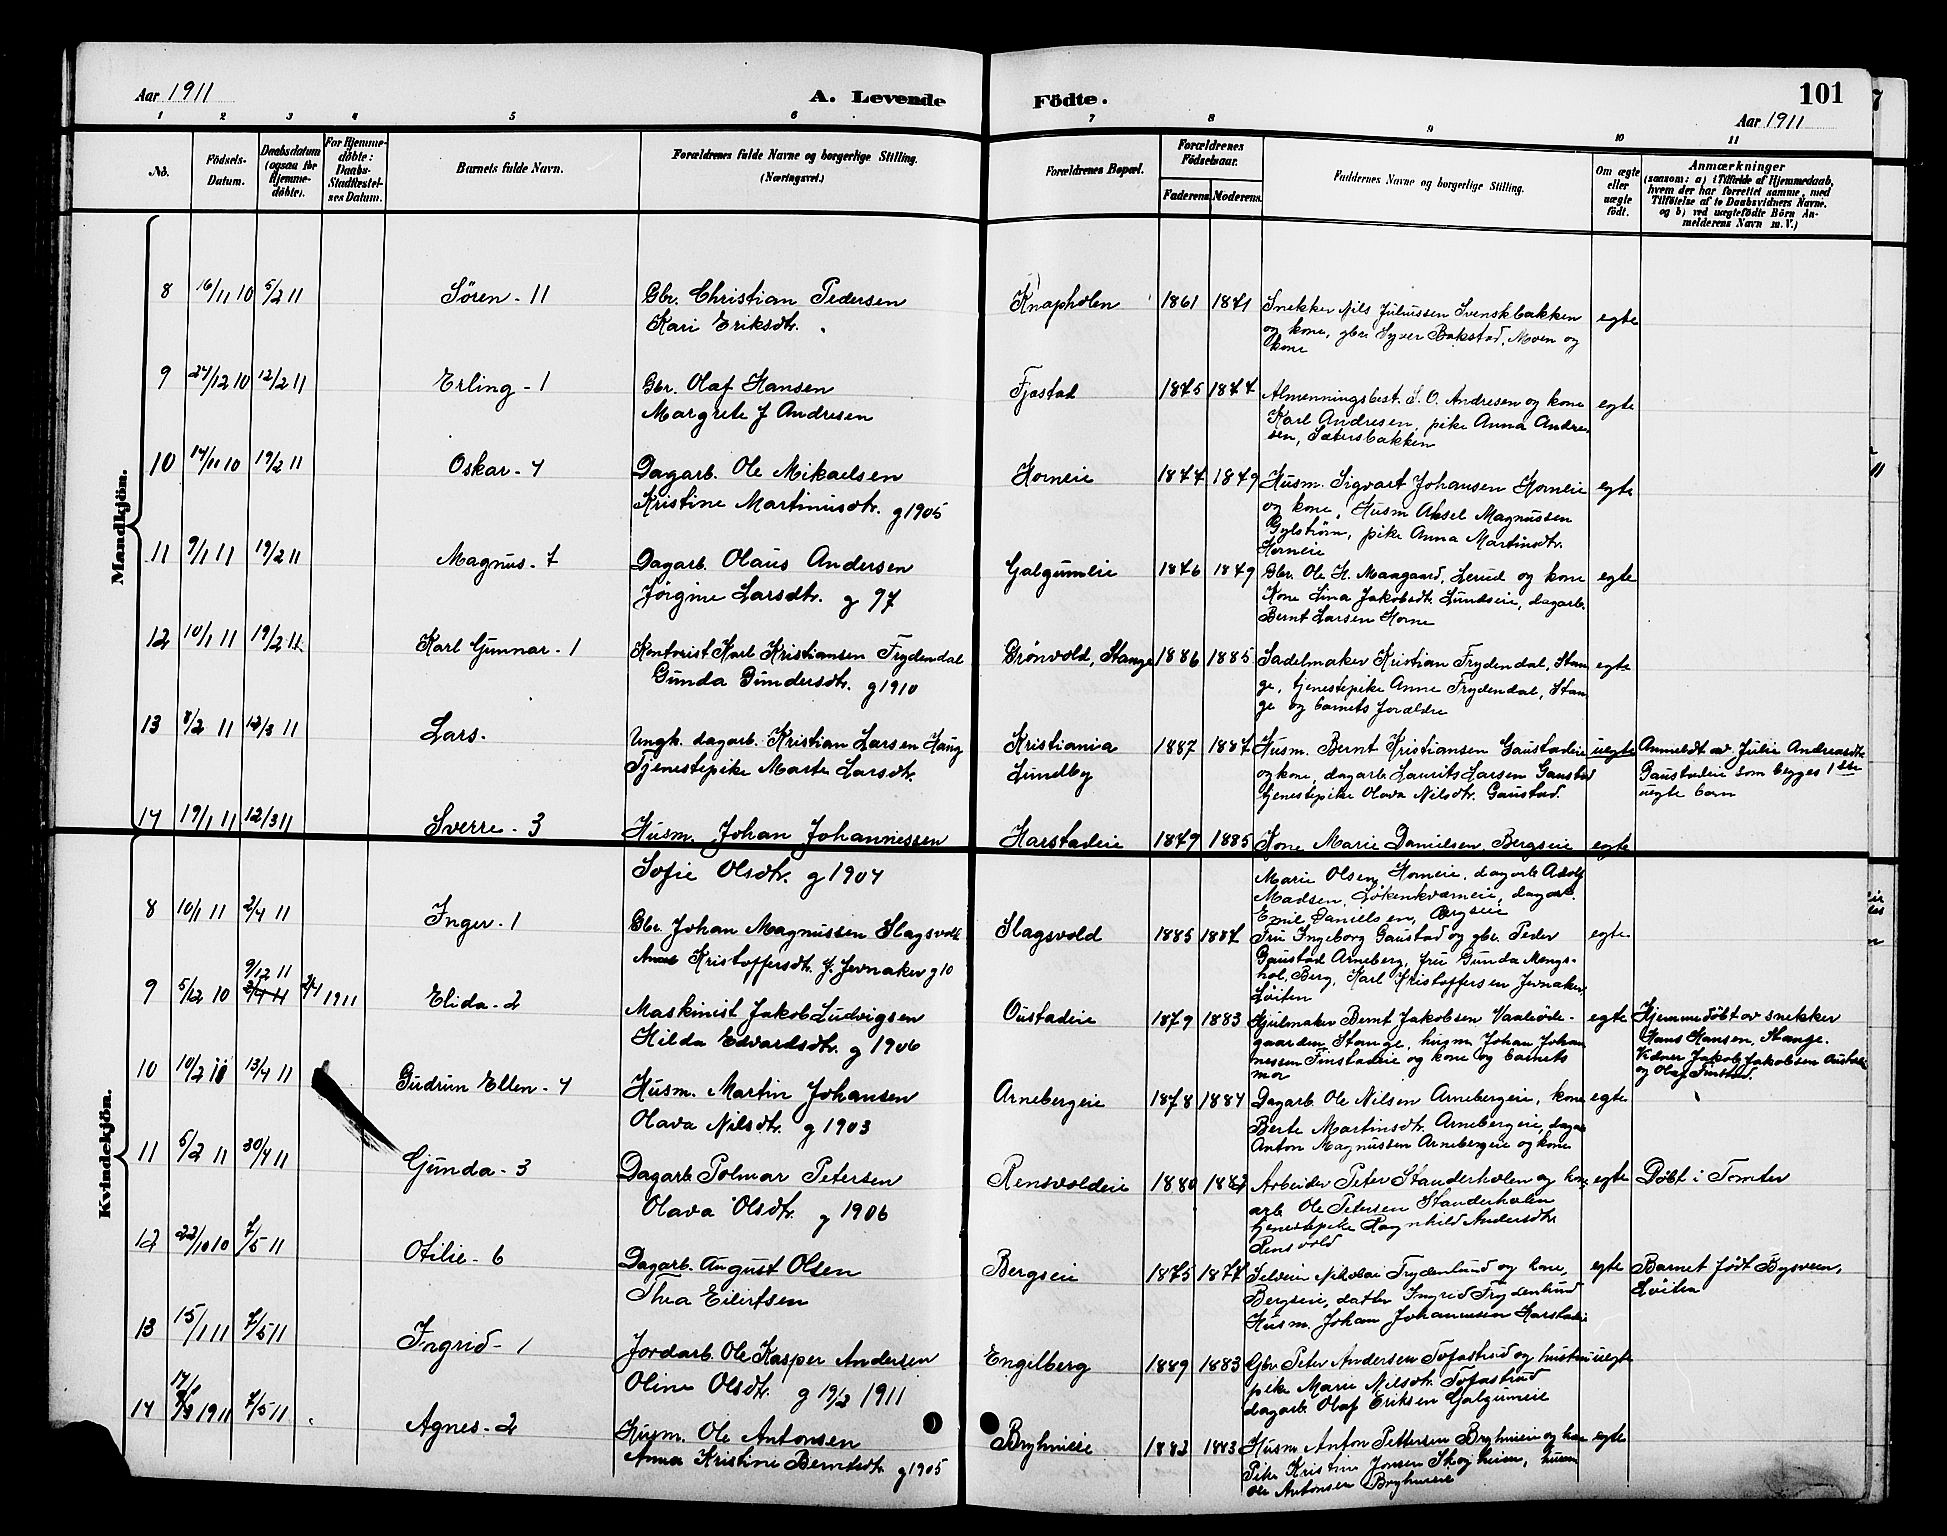 Aar 1911
A. Levende Födte.
101
Aar 1911
1 2 3 4 5 6 7 8 9 10 11
No.
Födsels-Datum.
Daabsdatum (ogsaa for Hjemmedöbte).
For Hjemmedöbte: Daabs-Stadfæstelses Datum.
Barnets fulde Navn.
Forældrenes fulde Navne og borgerlige Stilling.
(Næringsvei.)
Forældrenes Bopæl.
Forældrenes Födselsaar.
Faderens. Moderens.
Faddernes Navne og borgerlige Stilling.
Om ægte eller uægte födt.
Anmærkninger
(saasom: a) i Tilfælde af Hjemmedaab,
hvem der har forrettet samme, med
Tilföielse af to Daabsvidners Navne,
og b) ved uægtefödte Börn An-
melderens Navn m. V.)
Mandkjön.
8 16/11 10 5/2 11 Søren - 11 Gbr. Christian Pedersen Knapholen 1861 1871 Snekker Nils Juliussen Svenskbakken egte
Kari Eriksdtr. og kone, gbr. Syver Bakstad, Moen og
kone
9 27/12 10 12/2 11 Erling - 1 Gbr. Olaf Hansen Fjæstad 1875 1877 Almenningsbest. S. O. Andresen og kone egte
Margrete J Andresen Karl Andresen, pike Anna Andre-
sen, Sætersbakken
10 14/11 10 19/2 11 Oskar - 4 Dagarb. Ole Mikaelsen Horneie 1877 1879 Husm. Sigvart Johansen Horneie egte
Kristine Martinusdtr. g 1905 og kone, Husm Aksel Magnussen
Gylstrøm, pike Anna Martinsdtr.
Horneie
11 9/1 11 19/2 11 Magnus - 7 Dagarb. Olaus Andersen Galgumeie 1876 1879 Gbr. Ole H. Maagaard, Lerud og kone egte
Jørgine Larsdtr. g 97 Kone Lina Jakobsdt. Lundseie, dagarb.
Bernt Larsen Horne
12 10/1 11 19/2 11 Karl Gunnar - 1 Kontorist Karl Kristiansen Frydendal Grönvold, Stange 1886 1885 Sadelmaker Kristian Frydendal, Stan- egte
Gunda Gundersdtr. g 1910 ge, tjenestepike Anne Frydendal, Stan-
ge og barnets forældre
13 8/2 11 12/3 11 Lars. Ungk. dagarb. Kristian Larsen Haug Kristiania 1887 1887 Husm. Bernt Kristiansen Gaustadeie uegte Anmeldt av Julie Andreasdtr.
Tjenestepike Marte Larsdtr. Lundby og kone, dagarb. Laurits Larsen Gaustad Gaustadeie som begges 1ste
tjenestepike Olava Nilsdtr. Gaustad uegte barn
14 19/1 11 12/3 11 Sverre - 3 Husm. Johan Johannessen Harstadeie 1879 1885 Kone Marie Danielsen, Bergseie egte
Sofie Olsdtr. g 1904 Marie Olsen, Horneie, dagarb Adolf
Madsen, Løkenkværneie, dagarb.
Emil Danielsen, Bergseie
Kvindekjön.
8 10/1 11 2/4 11 Inger - 1 Gbr. Johan Magnussen Slagsvold Slagsvold 1885 1887 Fru Ingeborg Gaustad og gbr. Peder egte
Kristoffersdtr. f. Jevnaker g 10 Gaustad Arneberg, fru Gunda Mengs-
hol, Berg, Karl Kristoffersen Jevnaker,
Löiten
9 5/12 10 9/12 11 2/4 11 2/4 1911 Elida - 2 Maskinist Jakob Ludvigsen Oustadeie 1879 1883 Hjulmaker Bernt Jakobsen Vaaleöde- egte Hjemmedöbt av snekker
Hilda Edvardsdtr. g 1906 gaarden, Stange, husm Johan Johan- Hans Hansen, Stange.
nessen Finstadeie og kone og barnets Vidner Jakob Jakobsen Oustad
mor og Olaf Finstad.
10 10/2 11 13/4 11 Gudrun Ellen - 4 Husm. Martin Johansen Arnebergeie 1878 1884 Dagarb Ole Nilsen Arnebergeie, kone egte
Olava Nilsdtr. g 1903 Berte Martinsdtr. Arnebergeie, dagar
Anton Magnussen Arnebergeie og kone
11 5/2 11 30/4 11 Gunda - 3 Dagarb Polmar Petersen Rensvoldeie 1880 1882 Arbeider Peter Standerholen og kone, egte Döbt i Tomter
Olava Olsdtr. g 1906 arb Ole Petersen Standerholen
tjenestepike Ragnhild Andersdtr.
Rensvold
12 22/10 10 7/5 11 Otilie - 6 Dagarb. August Olsen Bergseie 1875 1877 Selveier Nikolai Frydenlund og kone, egte Barnet födt Bysveen,
Thea Eilertsen Bergseie, datter Ingrid Frydenlund Löiten
Husm. Johan Johannessen Harstadeie
13 15/1 11 7/5 11 Ingrid - 1 Jordarb. Ole Kasper Andersen Engelberg 1889 1883 Gbr Peter Andersen Tofastrud og hustru uegte
Oline Olsdtr. g 19/2 1911 pike Marie Nilsdtr. Tofastrud
dagarb Olaf Eriksen Galgumeie
14 1911 7/5 11 Agnes - 2 Husm. Ole Antonsen Bryhnieie 1882 1883 Husm Anton Pettersen Bryhnieie og kone egte
Anna Kristine Berntsdtr. g 1905 Pike Kristine Jonsen Skogheim, husm
Ole Antonsen Bryhnieie